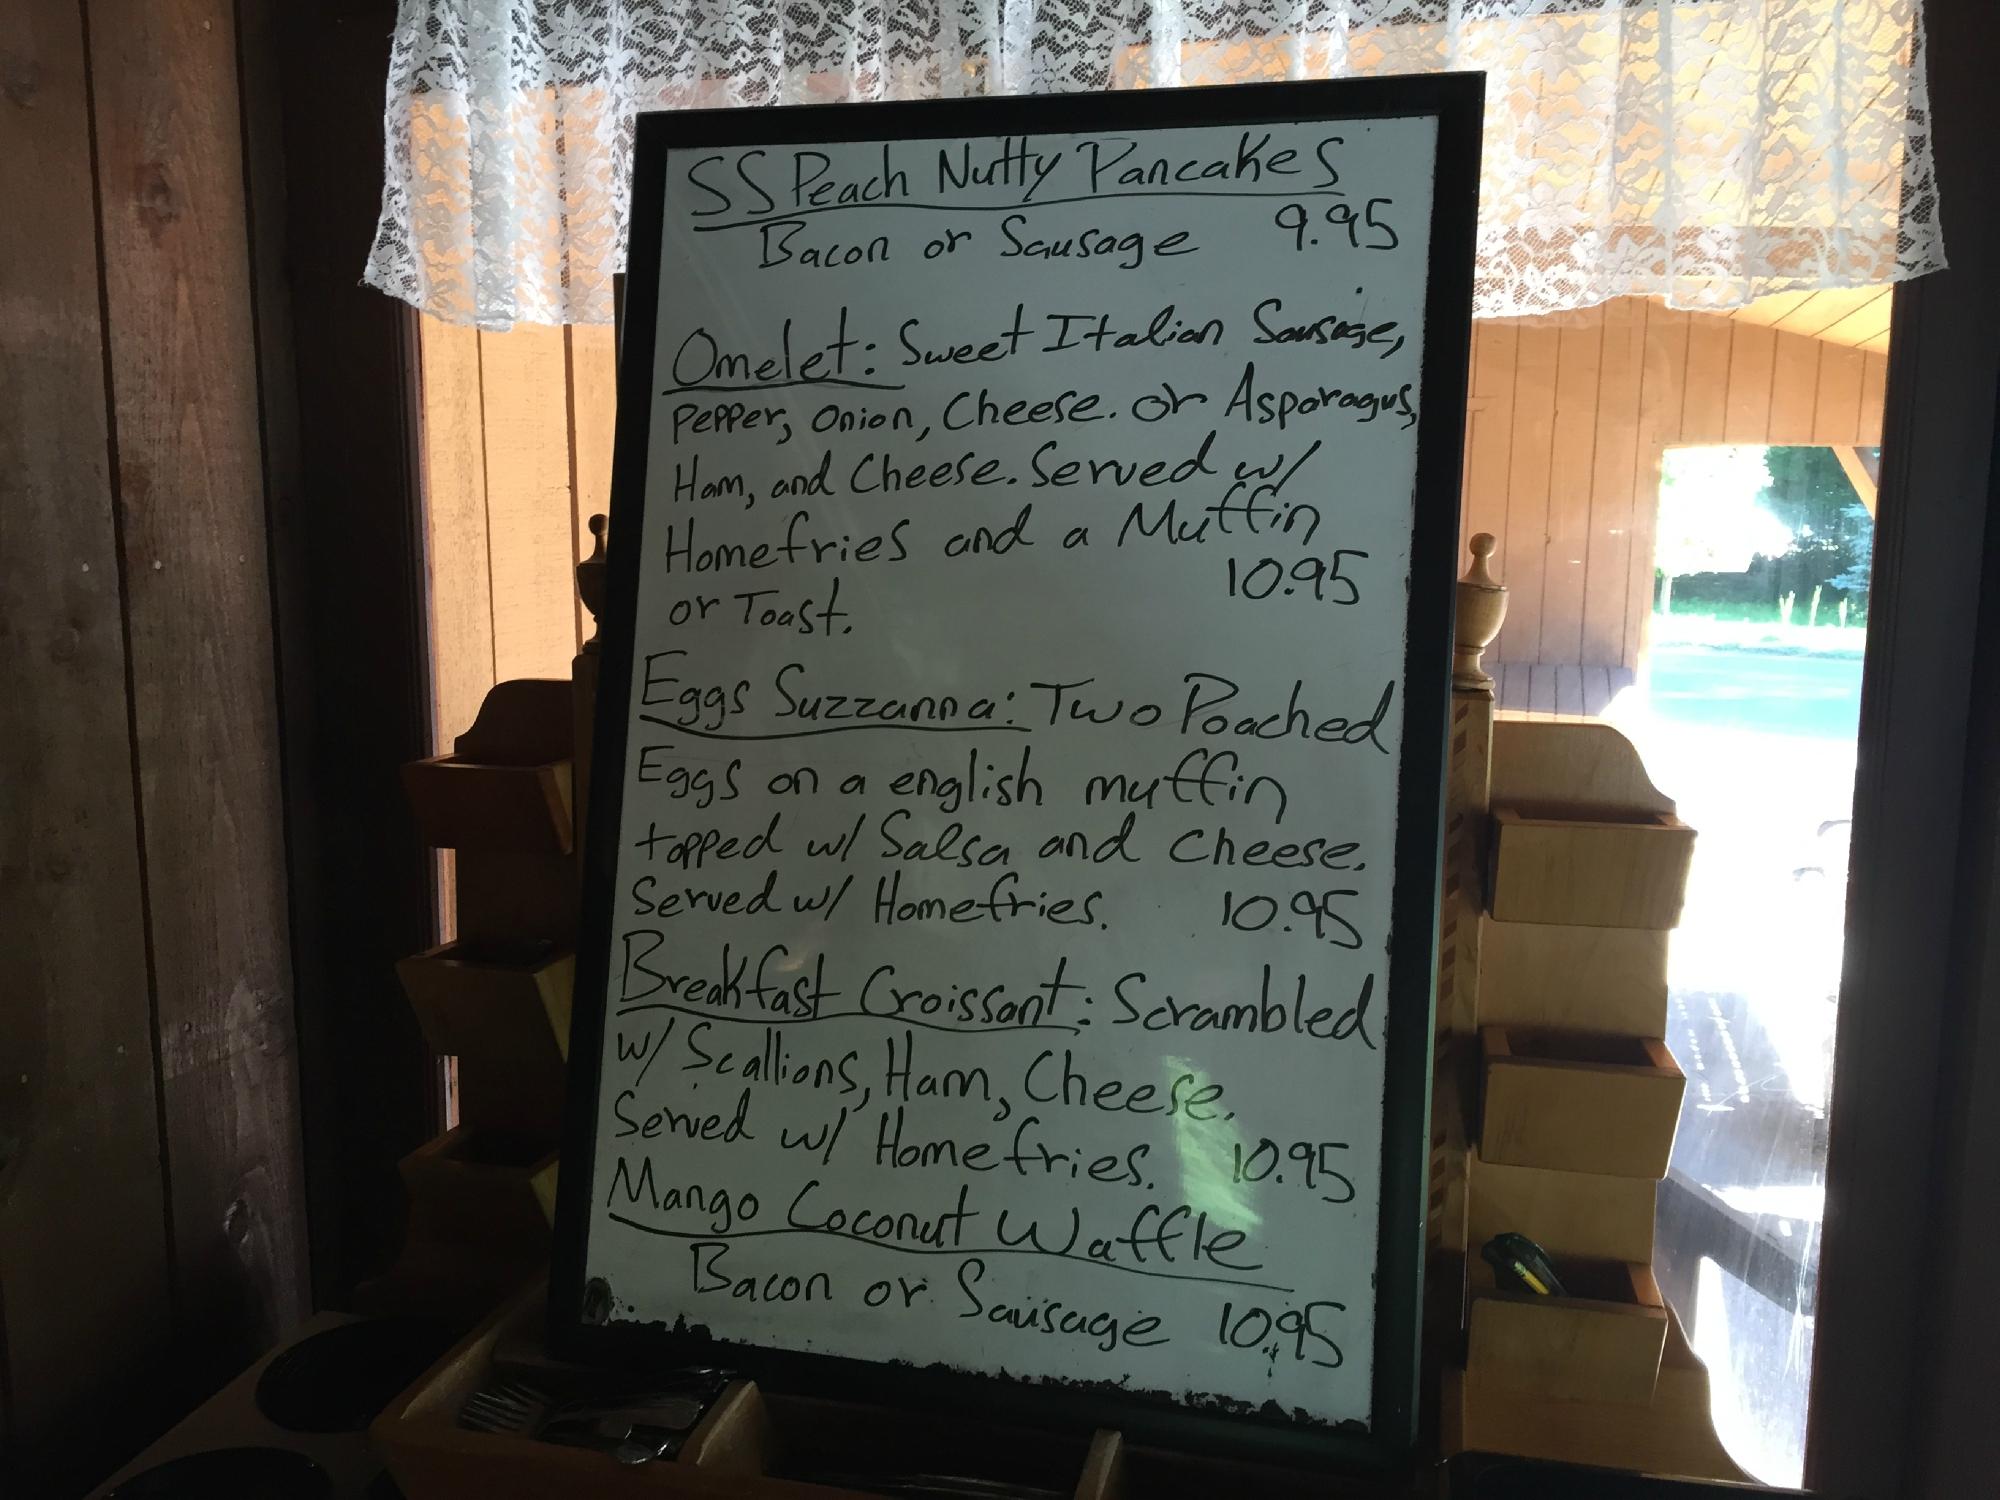 SS Peach Nutty Pancakes
Bacon or Sausage 9.95
Omelet: Sweet Italian Sausage,
Pepper, Onion, Cheese. or Asparagus,
Ham, and Cheese. Served w/
Homefries and a Muffin
or Toast. 10.95
Eggs Suzzanna: Two Poached
Eggs on a english muffin
topped w/ Salsa and Cheese.
Served w/ Homefries. 10.95
Breakfast Croissant: Scrambled
w/ Scallions, Ham, Cheese.
Served w/ Homefries. 10.95
Mango Coconut Waffle
Bacon or Sausage 10.95